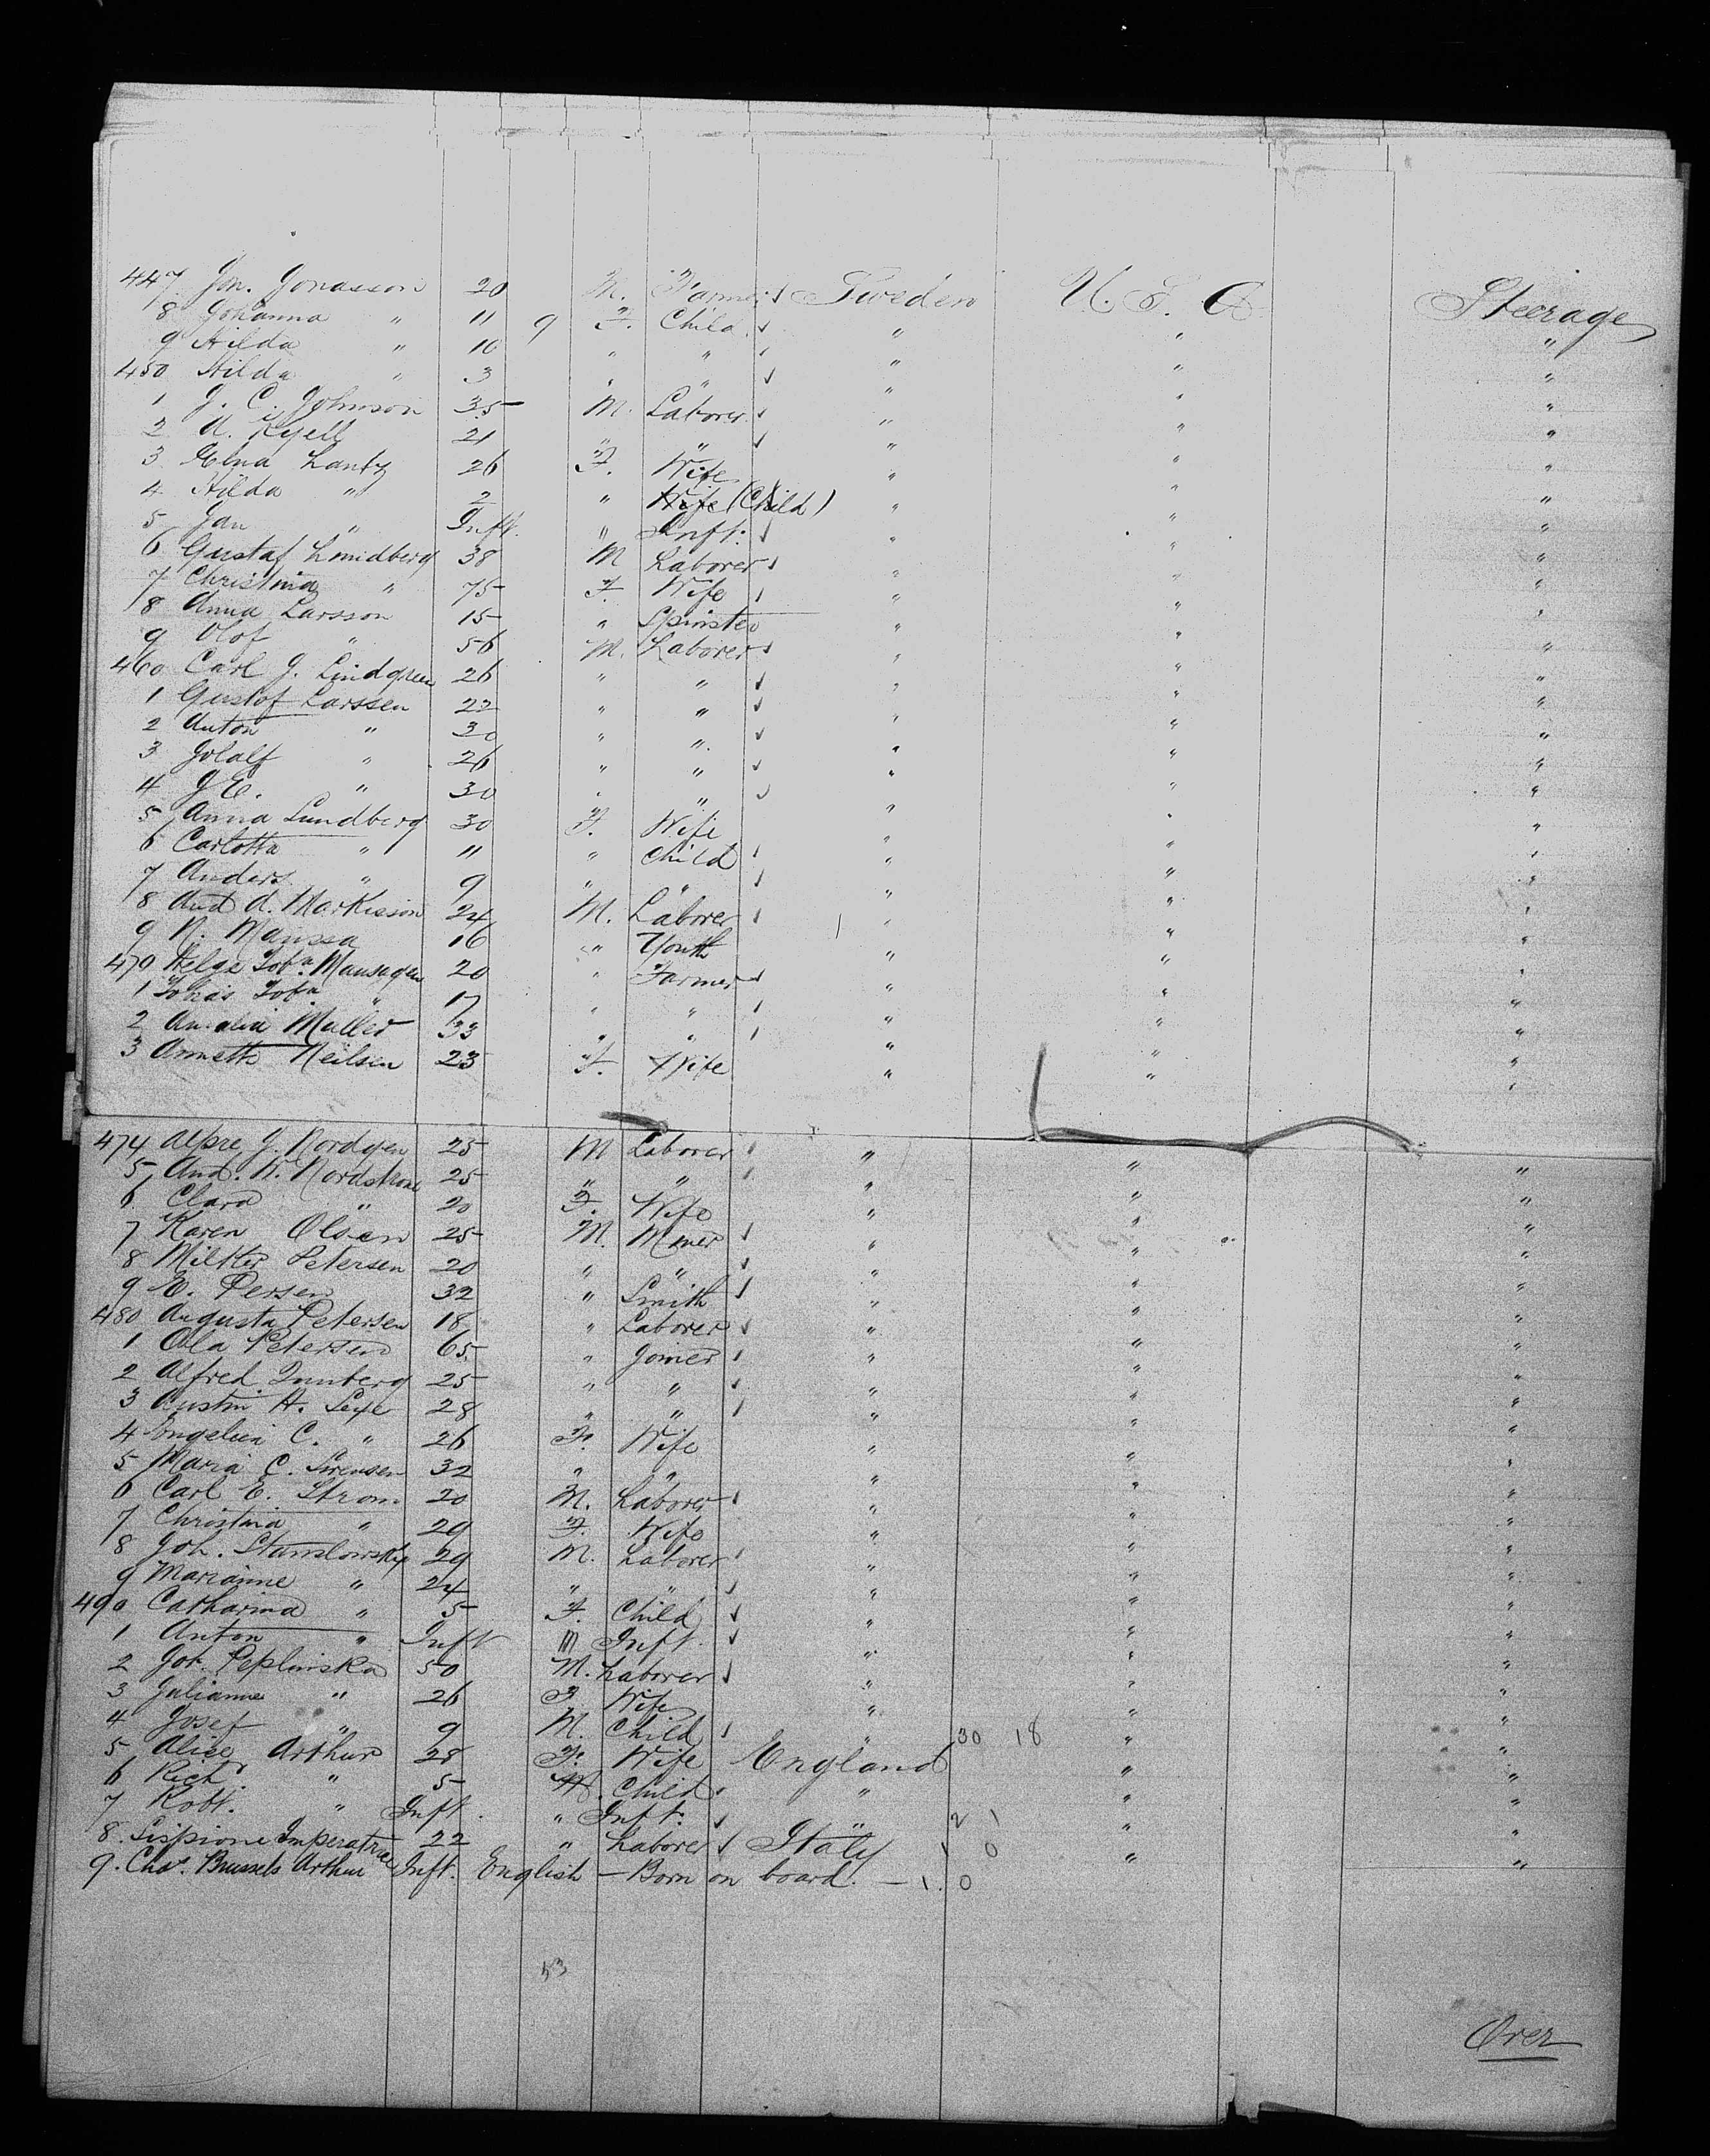 447 Jon. Jonasson 20 M. Farmer Sweden U. S. A Steerage
8 Johanna " 11 9 F. Child " " "
9 Hilda " 10 " " " " "
450 Hilda " 3 " " " " "
1 J. C. Johnson 35 M. Laborer " " "
2 A. Kjell 21 " " " " "
3 Elna Lantz 26 F. Wife " " "
4 Hilda " 2 " Wife (Child) " " "
5 Jan " Inft. " Inft. " " "
6 Gustaf 38 M Laborer " " "
7 Christina " 75 F. Wife " " "
8 Anna Larsson 15 " Spinster " " "
9 Olof " 56 M. Laborer " " "
460 Carl J. Lindgren 26 " " " " "
1 Gustof Larssen 22 " " " " "
2 Anton " 30 " " " " "
3 " 26 " " " " "
4 J E. " 30 " " " " "
5 Anna Lundberg 30 F. Wife " " "
6 Carlotta " 11 " Child " " "
7 Anders " 9 " " " " "
8 And A. Markisson 24 M. Laborer 1 " " "
9 N. Manssa 16 " Youth " " "
470 Helge Tofa. Mansagen 20 " Farmer " " "
1 Tofa " 17 " " " " "
2 Amalia Muller 33 " " " " "
3 Annette Neilsen 23 F. Wife " " "
474 J. Nordgen 25 M Laborer " " "
5 And. N. Nordstrom 25 " " " " "
6 Clara " 20 F. Wife " " "
7 Karen Olsen 25 M. Miner " " "
8 Petersen 20 " " " " "
9 Persen 32 " Smith " " "
480 Augusta Petersen 18 " Laborer " " "
1 Ola Petersen 65 " Joiner " " "
2 Alfred 25 " " " " "
3 Austin H. 28 " " " " "
4 C. " 26 F. Wife " " "
5 Maria C. Sorensen 32 " " " " "
6 Carl E. Strom 20 M. Laborer " " "
7 Christina " 29 F. Wife " " "
8 Joh. Stanslowsky 29 M. Laborer " " "
9 Marianne " 24 " " " " "
490 Catharina " 5 F. Child " " "
1 Anton " Inft M Inft. " " "
2 Joh. Peplinska 50 M. Laborer " " "
3 Julianne " 26 F Wife " " "
4 Josef " 9 M. Child " 30 18 " "
5 Alice Arthur 28 F. Wife England " "
6 Rich. " 5 M. Child " " "
7 Robt. " Inft. " Inft. " 2 1 " "
8. Sispione Imperatrice 22 " Laborer Italy 1 0 " "
9. Chas. Brussels Arthur Inft. English — Born on board. — 1. 0
53
Over